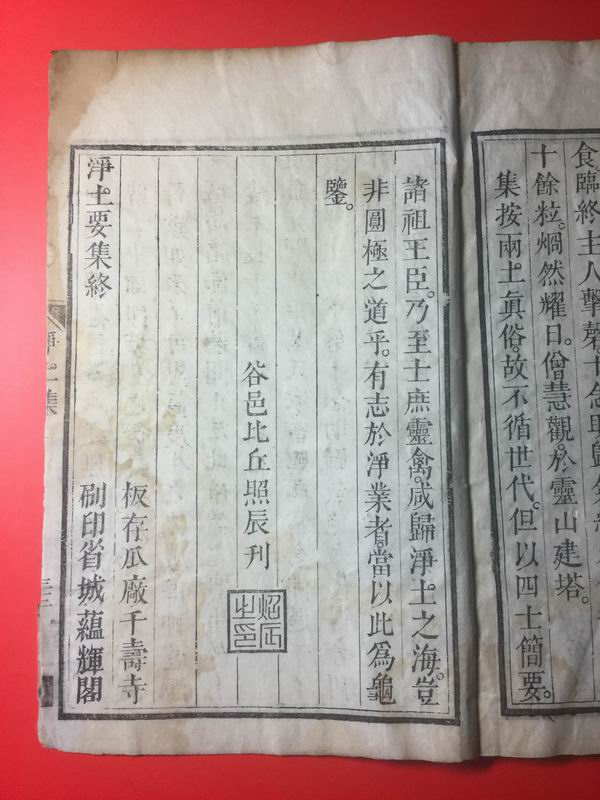 食臨終主人擊磬。十念助歸
十餘粒。烱然耀日。僧慧觀。於靈山建塔。
集按兩土眞俗。故不循世代。但以四士簡要。
諸祖王臣。乃至士庶靈禽。咸歸淨土之海。豈
非圓極之道乎。有志於淨業者。當以此為龜
鑒。
谷邑比丘照辰刊
照辰之印
板存瓜廠千壽寺
淨土要集終
刷印省城蘊輝閣
淨土集